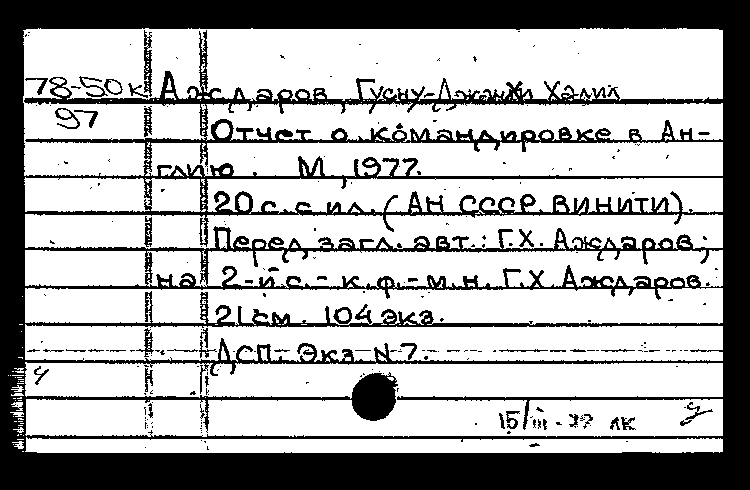 78-50к Аждаров, Гусну-Джанхи Халил
97
Отчет о командировке в Ан-
глию. М., 1977.
20 с. с ил. (АН СССР. ВИНИТИ).
Перед загл. авт.: Г.Х. Аждаров;
на 2-й с. - к.ф.-м.н. Г.Х. Аждаров.
21 см. 104 экз.
ДСП. Экз. N 7.
15/III - лк